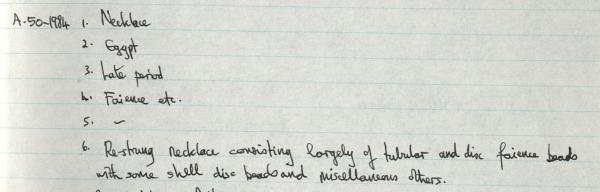 A.50-1984 1. Necklace
2. Egypt
3. Late period
4. Faience etc.
5. –
6. Re-strung necklace consisting largely of tubular and disc faience beads
with some shell disc beads and miscellaneous others.